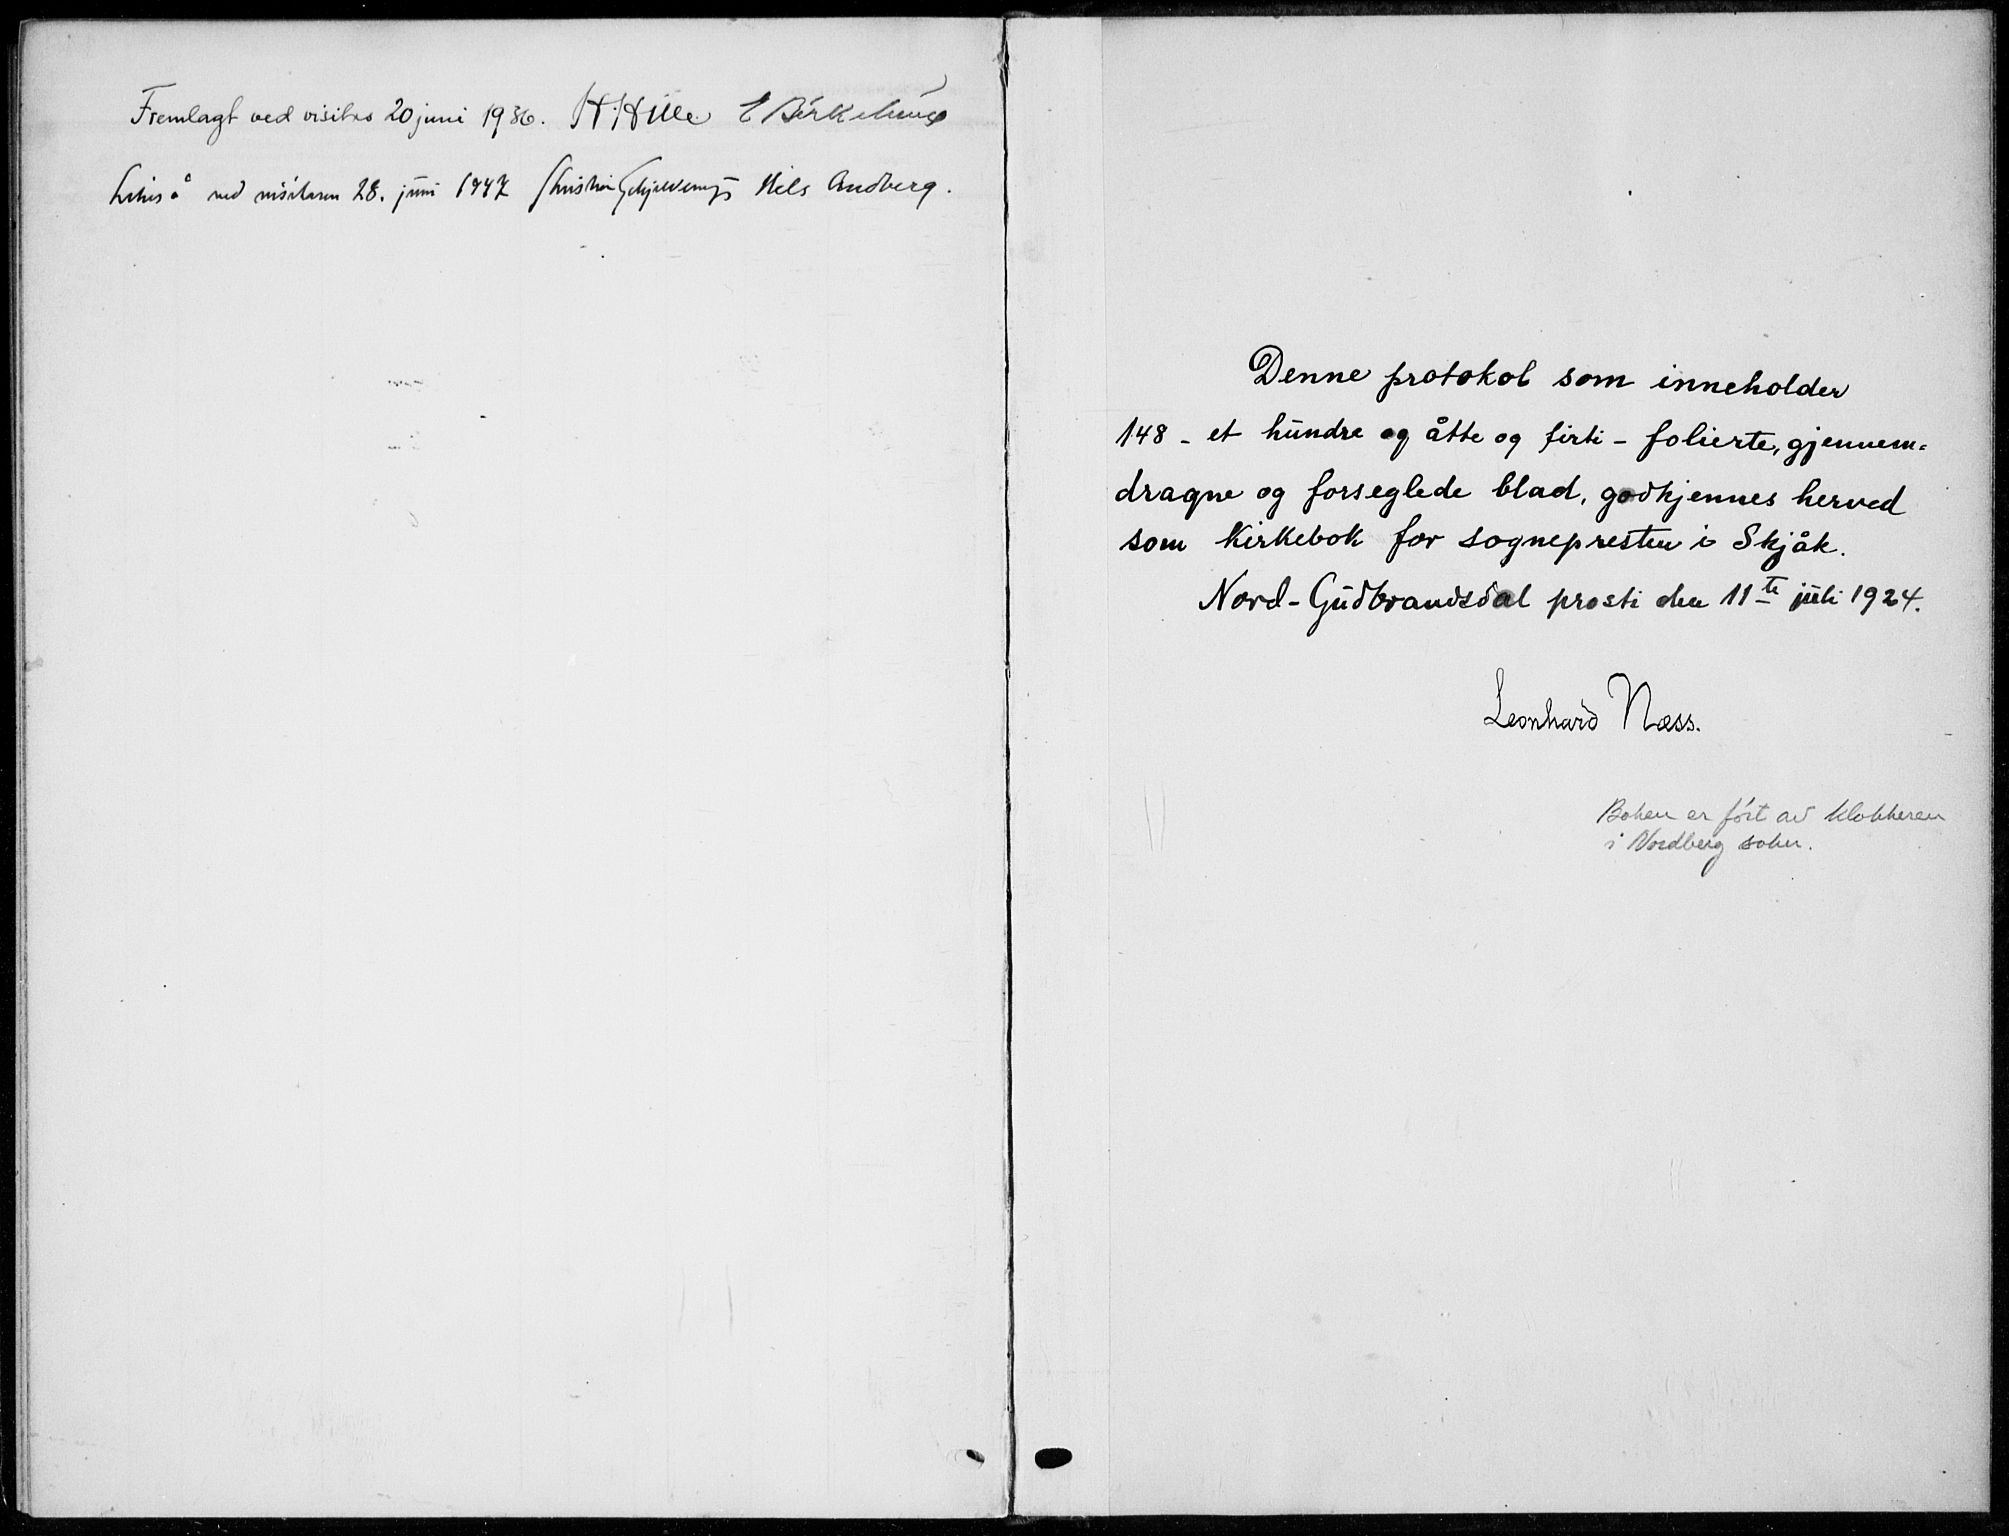 Fremlagt ved visitas 20 juni 1936. H. Hille E Birkelund
28. juni 1947 Kristian Schjelderup Nils Andberg.
Denne protokol som inneholder
148 - et hundre og åtte og firti - folierte, gjennem-
dragne og forseglede blad, godkjennes herved
som kirkebok for sognepresten i Skjåk.
Nord-Gudbrandsdal prosti den 11te juli 1924.
Leonhard Næss.
Boken er ført av klokkeren
i Nordberg sokn.